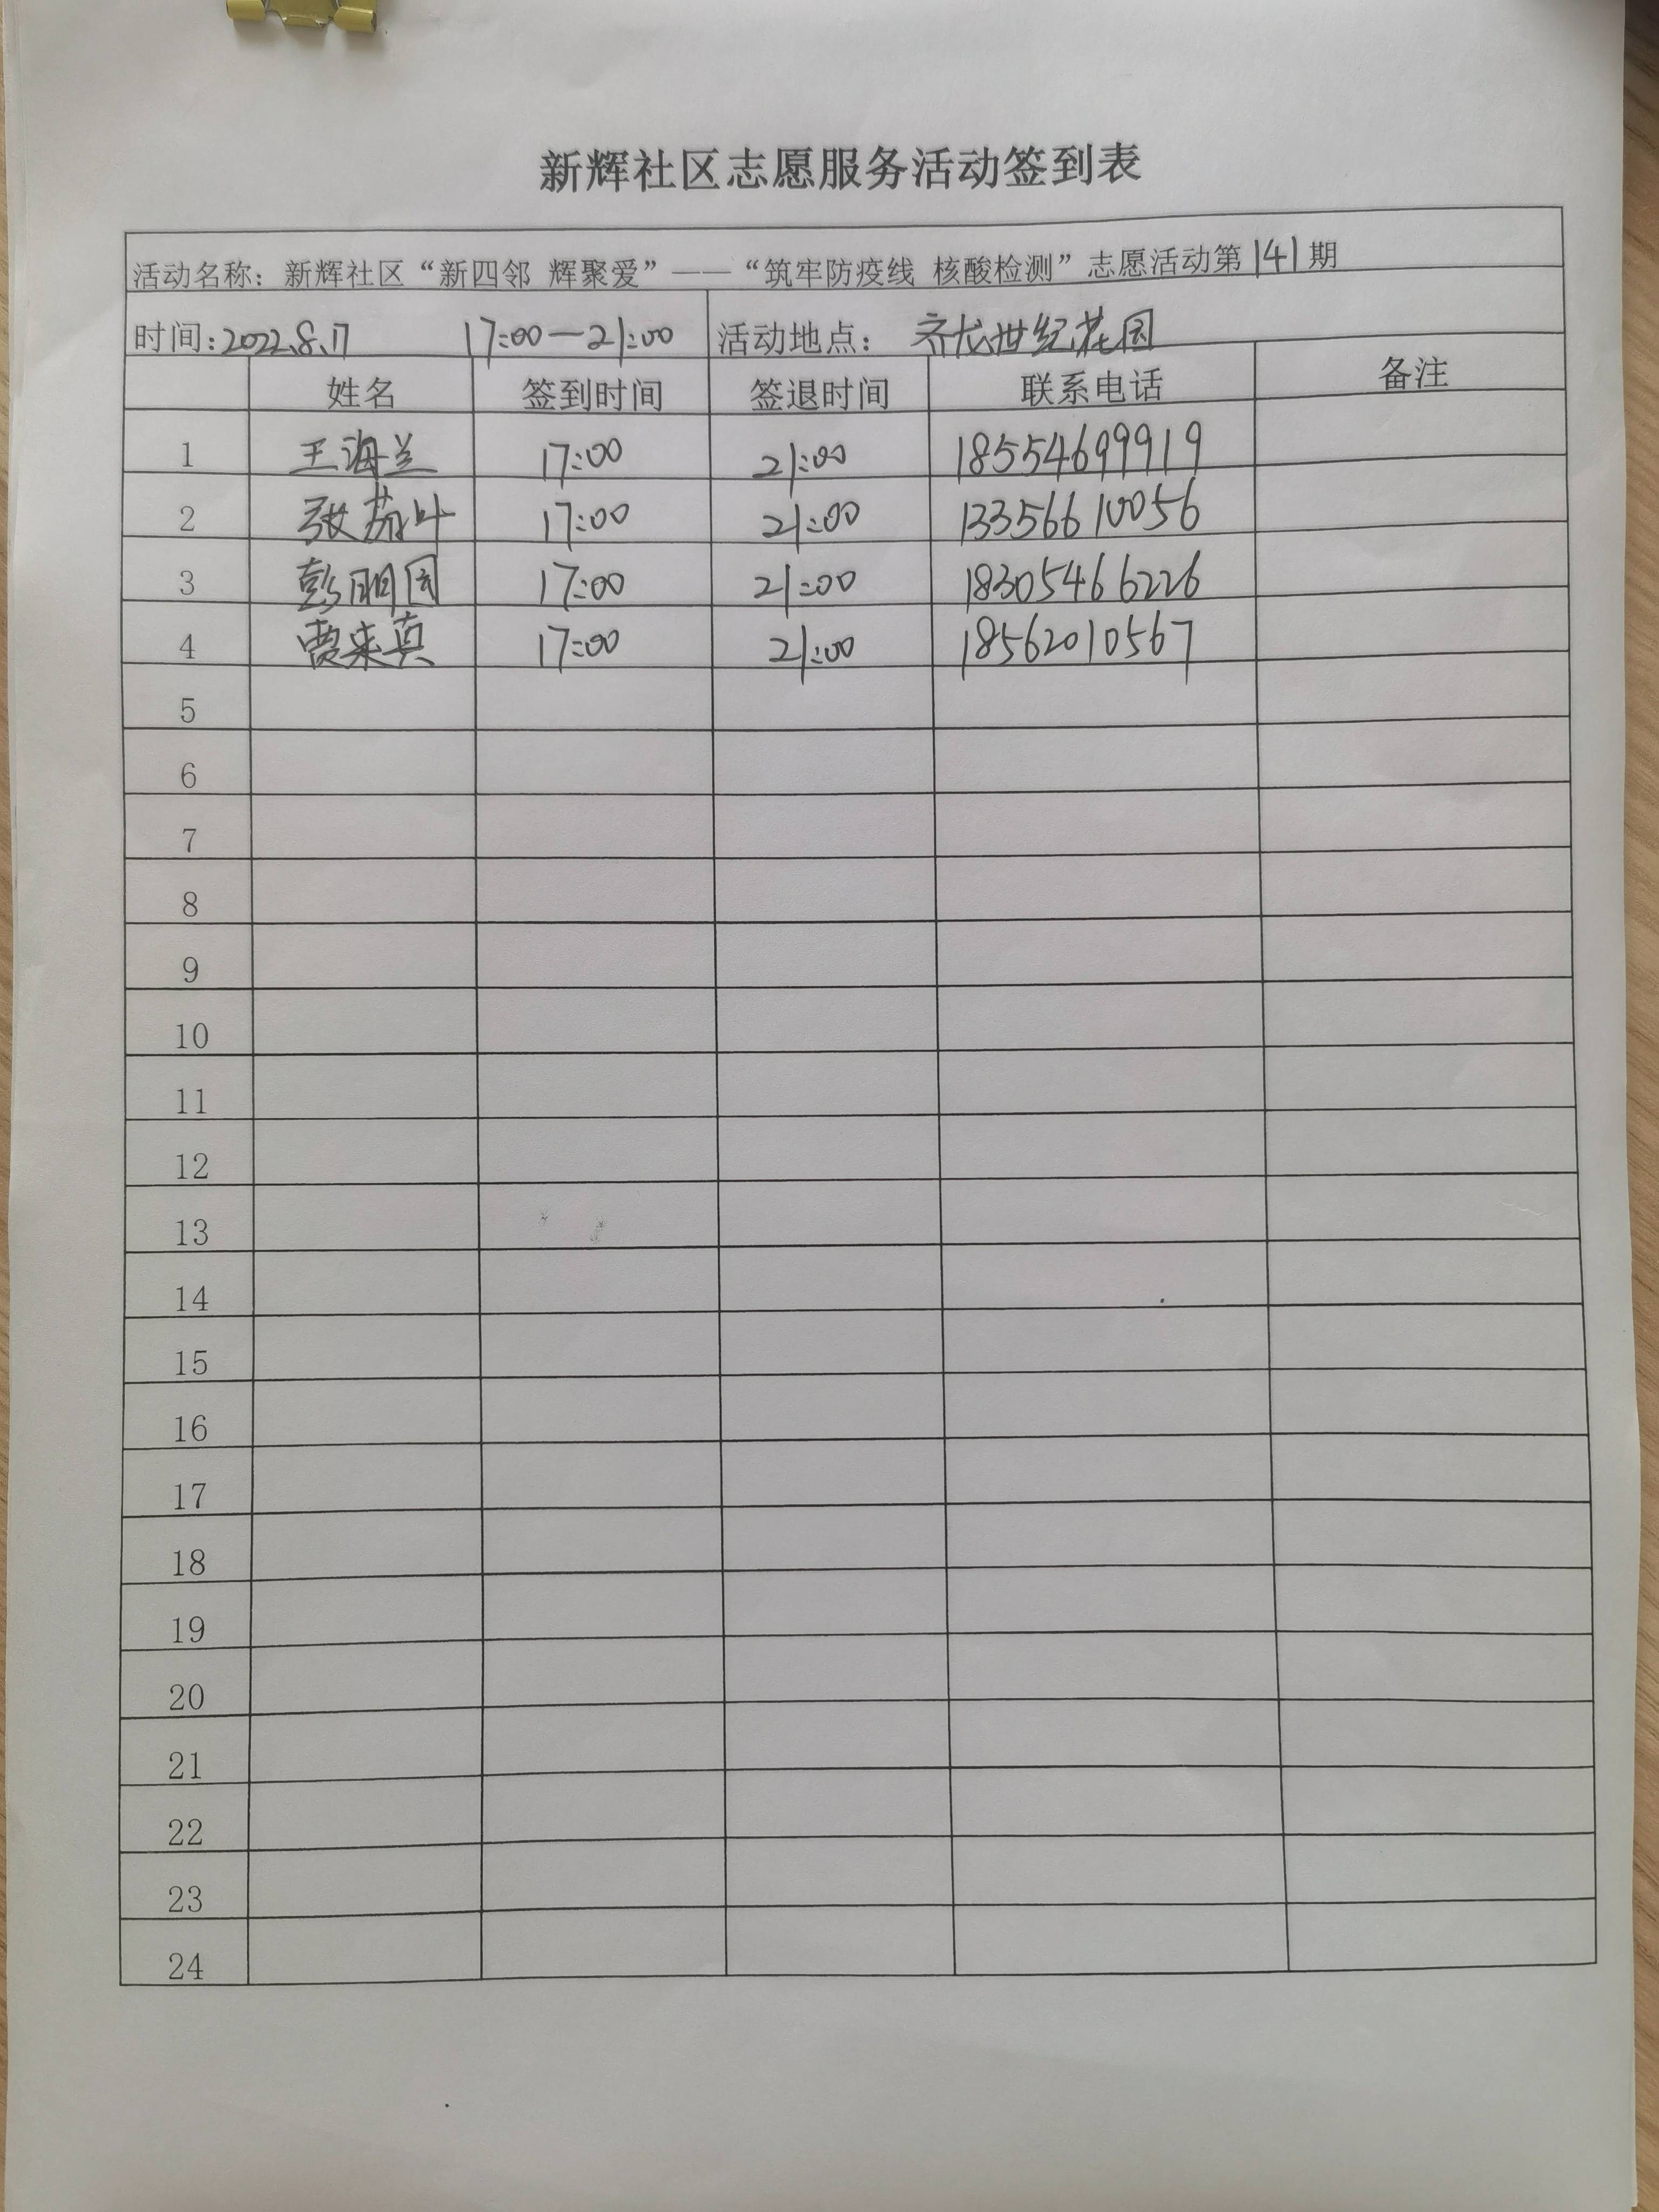 新辉社区志愿服务活动签到表
活动名称：新辉社区“新四邻 辉聚爱”——“筑牢防疫线 核酸检测”志愿活动第141期
时间：2022.8.17 17:00—21:00 活动地点：齐龙世纪花园
姓名 签到时间 签退时间 联系电话 备注
1 王海兰 17:00 21:00 18554699919
2 张荔叶 17:00 21:00 13356610056
3 彭丽园 17:00 21:00 18305466226
4 贾来真 17:00 21:00 18562010567
5
6
7
8
9
10
11
12
13
14
15
16
17
18
19
20
21
22
23
24